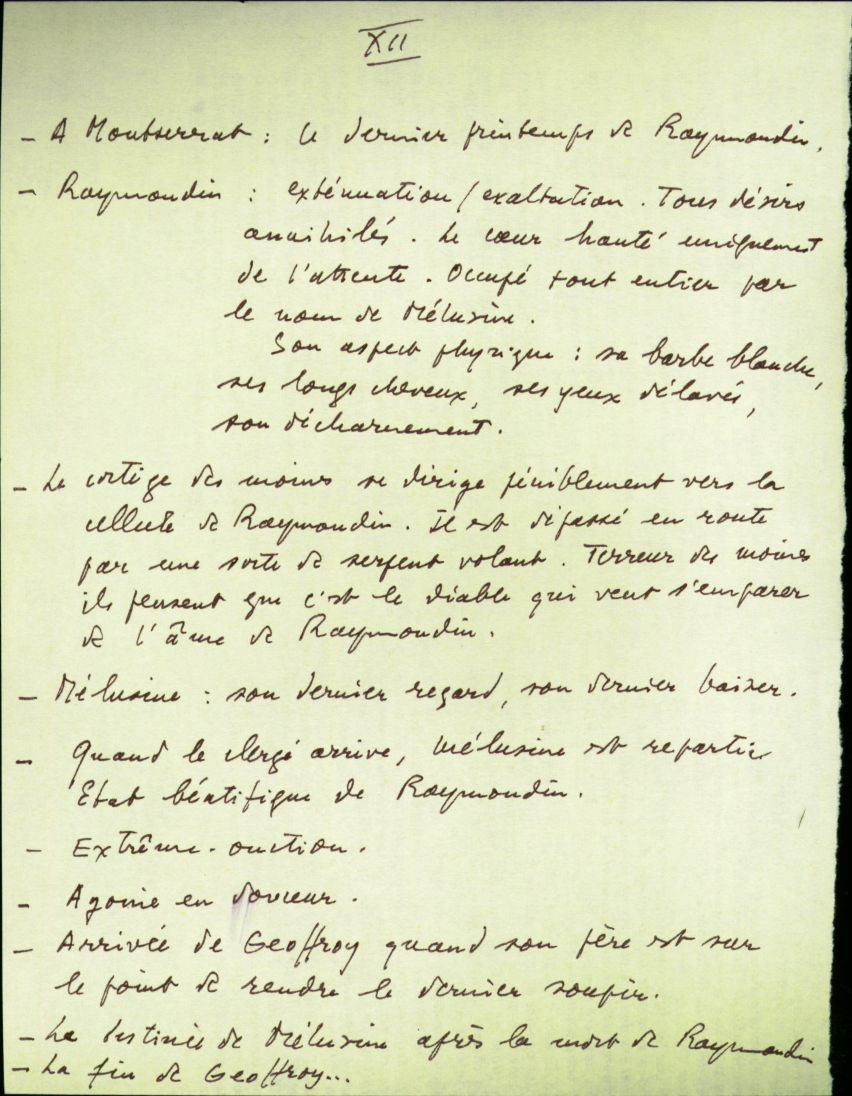 XII
- A Montserrat : le dernier printemps de Raymondin.
- Raymondin : exténuation / exaltation. Tous désirs
annihilés. Le cœur hanté uniquement
de l'attente. Occupé tout entier par
le nom de Mélusine.
Son aspect physique : sa barbe blanche,
ses longs cheveux, ses yeux délavés,
son décharnement.
- Le cortège des moines se dirige péniblement vers la
cellule de Raymondin. Il est dépassé en route
par une sorte de serpent volant. Terreur des moines
ils pensent que c'est le diable qui veut s'emparer
de l'âme de Raymondin.
- Mélusine : son dernier regard, son dernier baiser.
- Quand le clergé arrive, Mélusine est repartie
Etat béatifique de Raymondin.
- Extrême-onction.
- Agonie en douceur.
- Arrivée de Geoffroy quand son père est sur
le point de rendre le dernier soupir.
- La destinée de Mélusine après la mort de Raymondin
- La fin de Geoffroy...